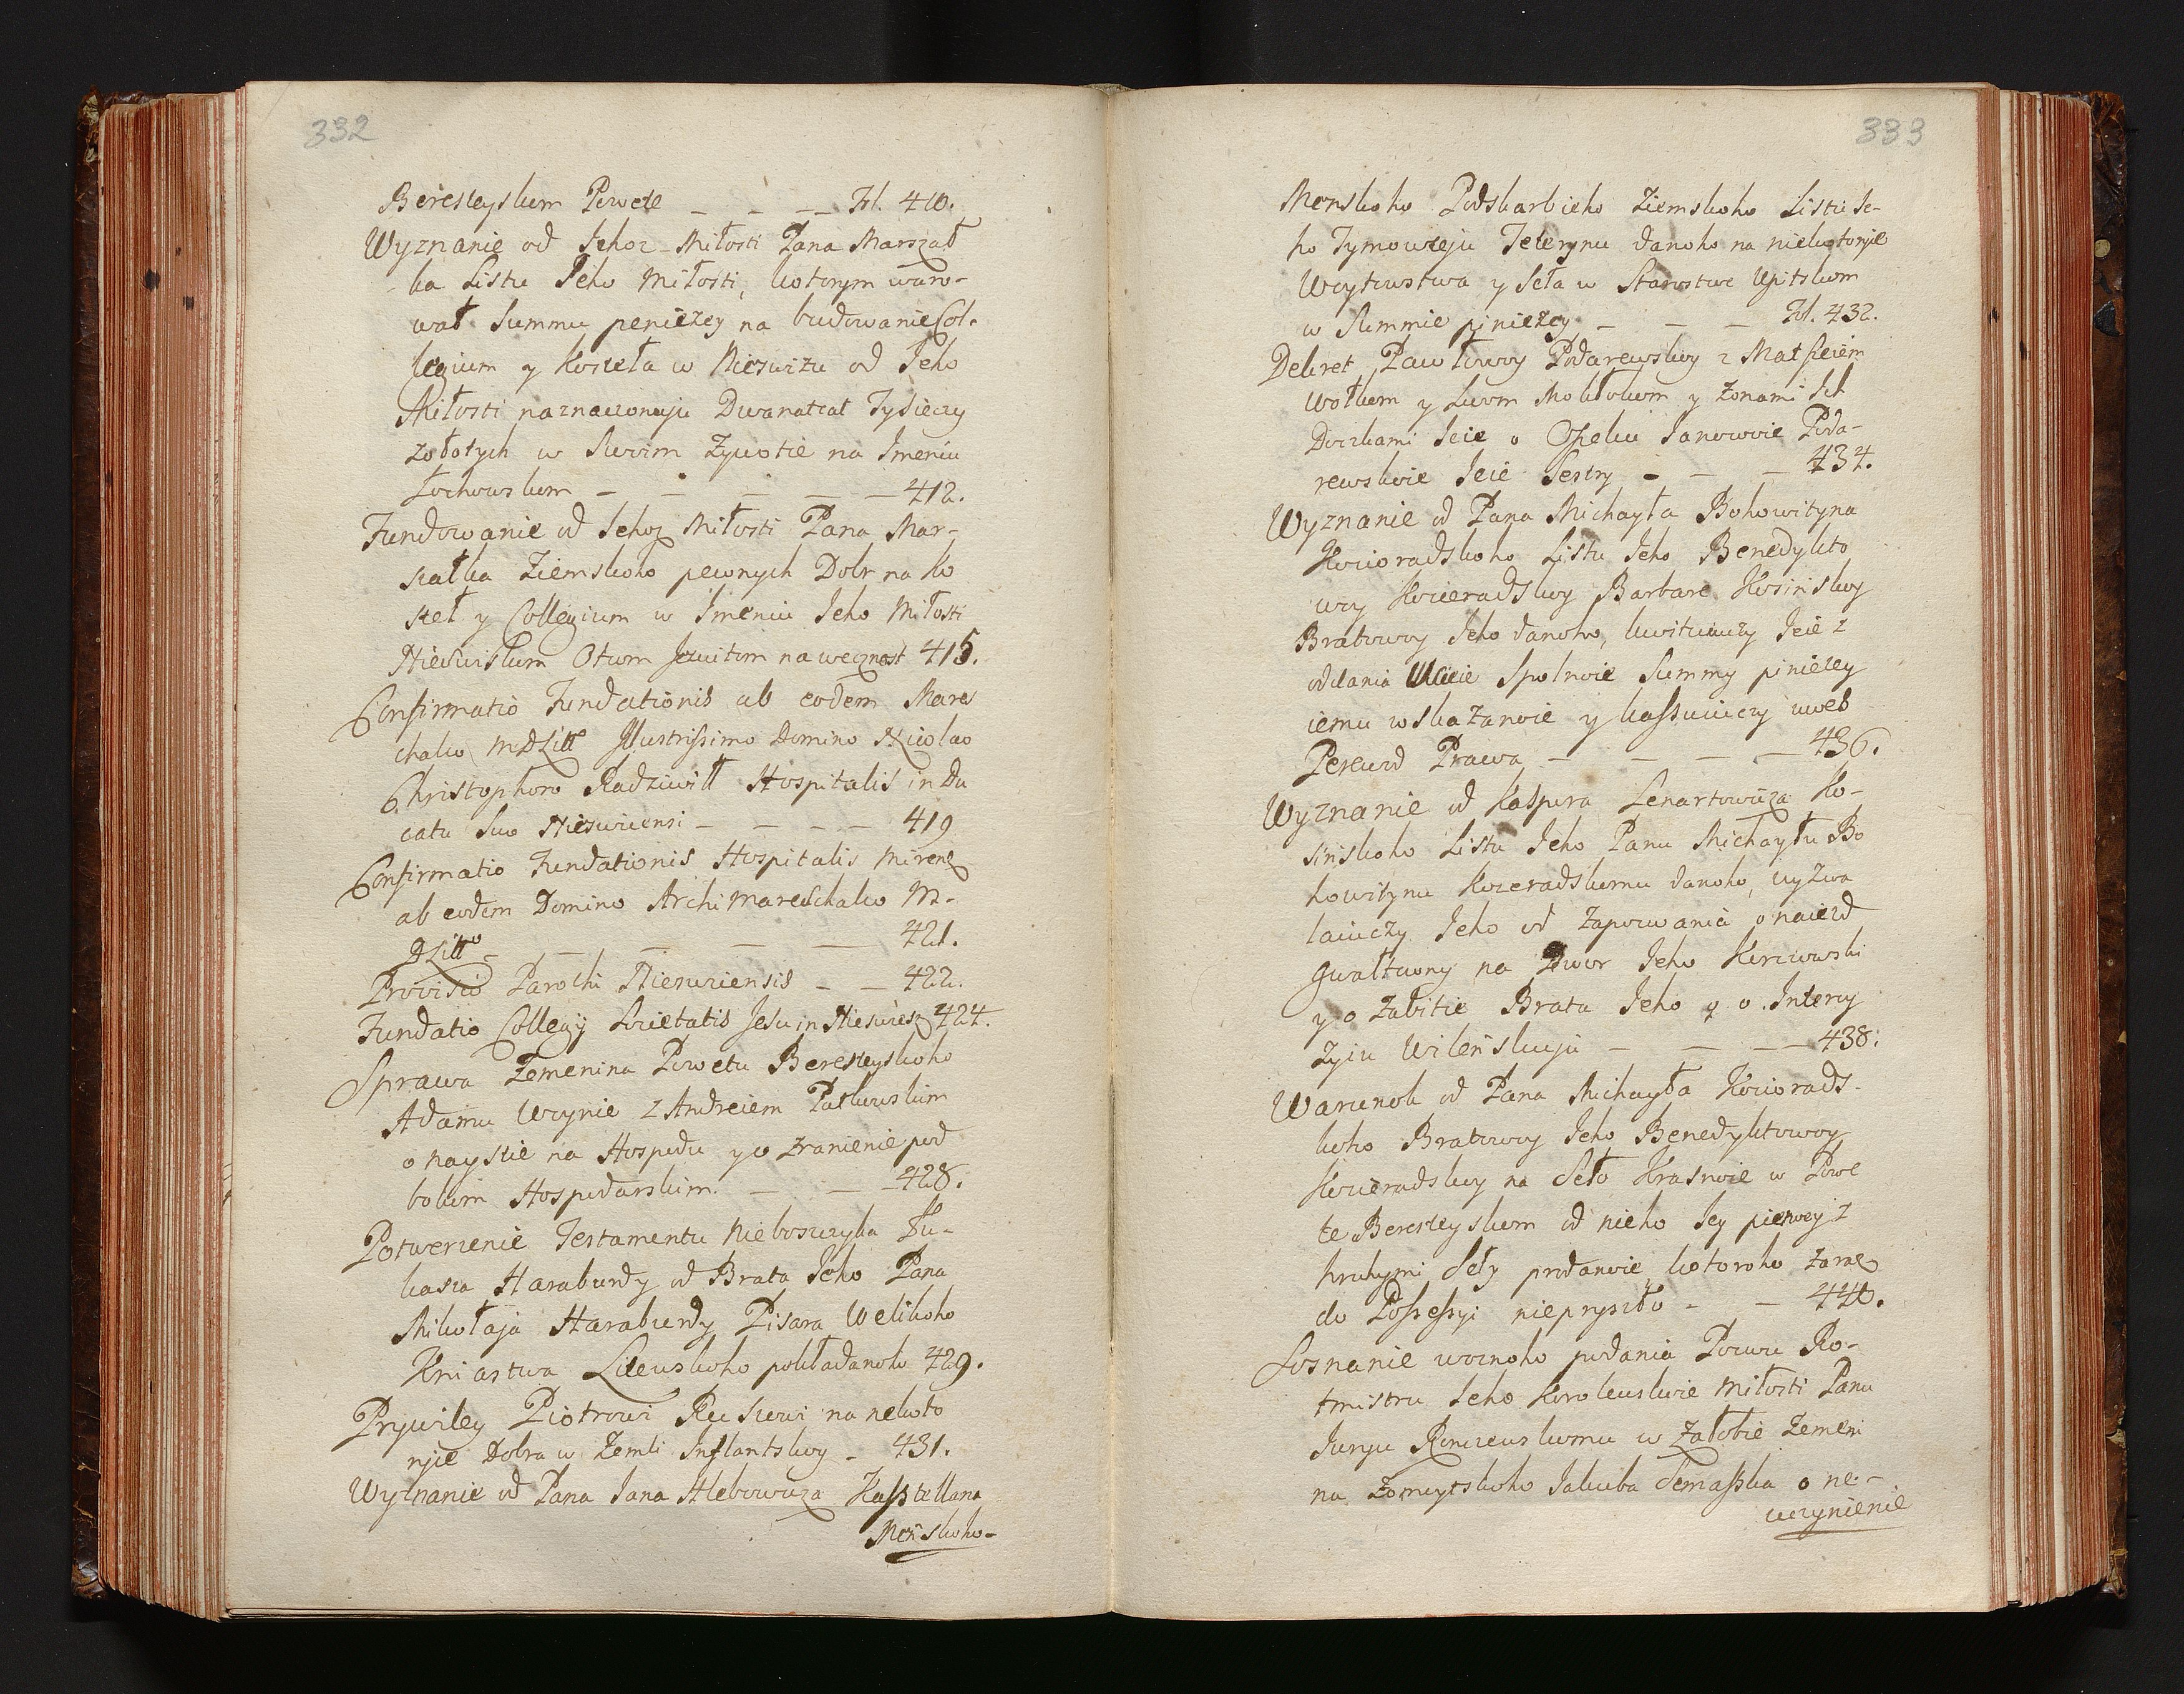 332
Beresteyskom Powete _ _ _ _ Fol. 410.
Wyznanie od Jehoz Miłosti Pana Marszał
ka Listu Jeho Miłosti, kotorym waro-
wał Summu peniezey na budowanie Col-
legium y Kosteła w Nieswizu od Jeho
Miłosti naznaczonuju Dwanatcat Tysieczy
zołotych w Swoim Zywotie na Imeniu
Łochowskom _ _ _ _ _ 412.
Fundowanie od Jehoz Miłosti Pana Mar-
szałka Ziemskoho pewnych Dobr na Ko
steł y Collegium w Imeniu Jeho Miłosti
Nieswiskom Otcom Jezuitom na wecznost 415.
Confirmatio Fundationis ab eodem Mares
chalco MDLitt Illustrissimo Domino Nicolao
Christophoro Radziwiłł Hospitalis in Du
catu Suo Nieswicensi _ _ _ _ 419
Confirmatio Fundationis Hospitalis Mirens
ab eodem Domino Archimareschalco M-
DLitt _ _ _ _ 421.
Provisio Parochi Nieswicensis _ _ 422.
Fundatio Collegij Societatis Jesu in Nieswiesz 424.
Sprawa Zemenina Powetu Beresteyskoho
Adamu Woynie z Andreiem Patkowskim
o nayscie na Hospodu y o zranienie pod
bokom Hospodarskim. _ _ 428.
Potwerzenie Testamentu nieboszczyka Łu-
kasza Haraburdy od Brata Jeho Pana
Mikołaja Haraburdy Pisara Welikoho
Kniastwa Litewskoho pokładanoho 429.
Prywiley Piotrowi Ruskowi na nekoto
ryie Dobra w Zemli Inflantskoy _ 431.
Wyznanie od Pana Jana Hlebowicza Kasstellana
Menskoho-
333
Menskoho Podskarbieho Ziemskoho Listu Je-
ho Tymowieju Teterynu danoho na niekotoryie
Woytowstwa y Seła w Starostwe Upitskom
w Summie piniezey _ _ _ Fol. 432.
Dekret Pawłowoy Podarewskoy z Matfeiem
Wołkom y Lwom Mokłokom y Zonami Ich
Doczkami Jeie o Opeku Janowoie Poda-
rewskoie Jeie Sestry _ _ _ 434.
Wyznanie od Pana Michayła Bohowityna
Kozieradskoho Listu Jeho Benedykto
woy Kozieradskoy Barbare Kosinskoy
Bratowoy Jeho danoho, kwituiuczy Jeie z
oddania Uciie Spolnoie Summy piniezey
iemu wskazanoie y kassuiuczy wweś
Perewod Prawa _ _ _ _ 436.
Wyznanie od Kaspera Lenartowicza Ko-
sinskoho Listu Jeho Panu Michayłu Bo
howitynu Kozeradskomu danoho, wyzwa
laiuczy Jeho od Zapozwania o naiezd
gwałtowny na Dwor Jeho Korczowski
y o Zabitie Brata Jeho y o Intercy
zyiu Wilenskuju _ _ _ _ 438.
Warunok od Pana Michayła Kozierads-
koho Bratowoy Jeho Benedyktowoy
Kozieradskoy na Seło Krasnoie w Powe
te Beresteyskom od nieho Jey pierwey z
hruhymi Seły prodanoie, kotoroho zaraz
do Possessyi niepryszło _ _ 440.
Soznanie woznoho podania Pozwu Ro-
tmistru Jeho Korolewskoie Miłosti Panu
Juryu Konczewskomu w Załobie Zemeni
na Zomoytskoho Jakuba Semaszka o ne-
uczynienie